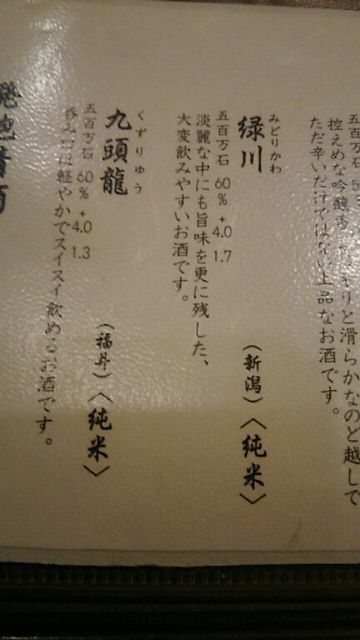 控えめな吟醸香
りと滑らかなのど越しで
ただ辛いだけではない上品なお酒です。
みどりかわ
緑川
(新潟)〈純米〉
五百万石 60% +4.0 1.7
淡麗な中にも旨味を更に残した、
大変飲みやすいお酒です。
くずりゅう
九頭龍
(福井)〈純米〉
五百万石 60% +4.0 1.3
呑み口は軽やかでスイスイ飲めるお酒です。